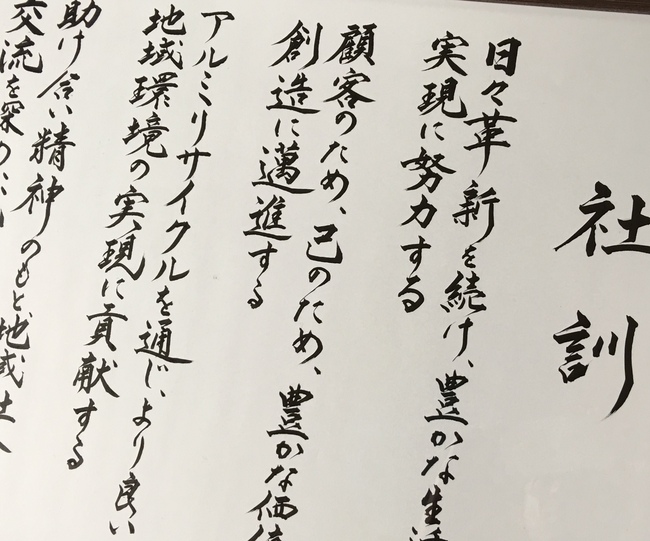 社訓
日々革新を続け、豊かな生活
実現に努力する
顧客のため、己のため、豊かな価値
創造に邁進する
アルミリサイクルを通じ、より良い
地域環境の実現に貢献する
助け合い精神のもと地域社会
交流を深め